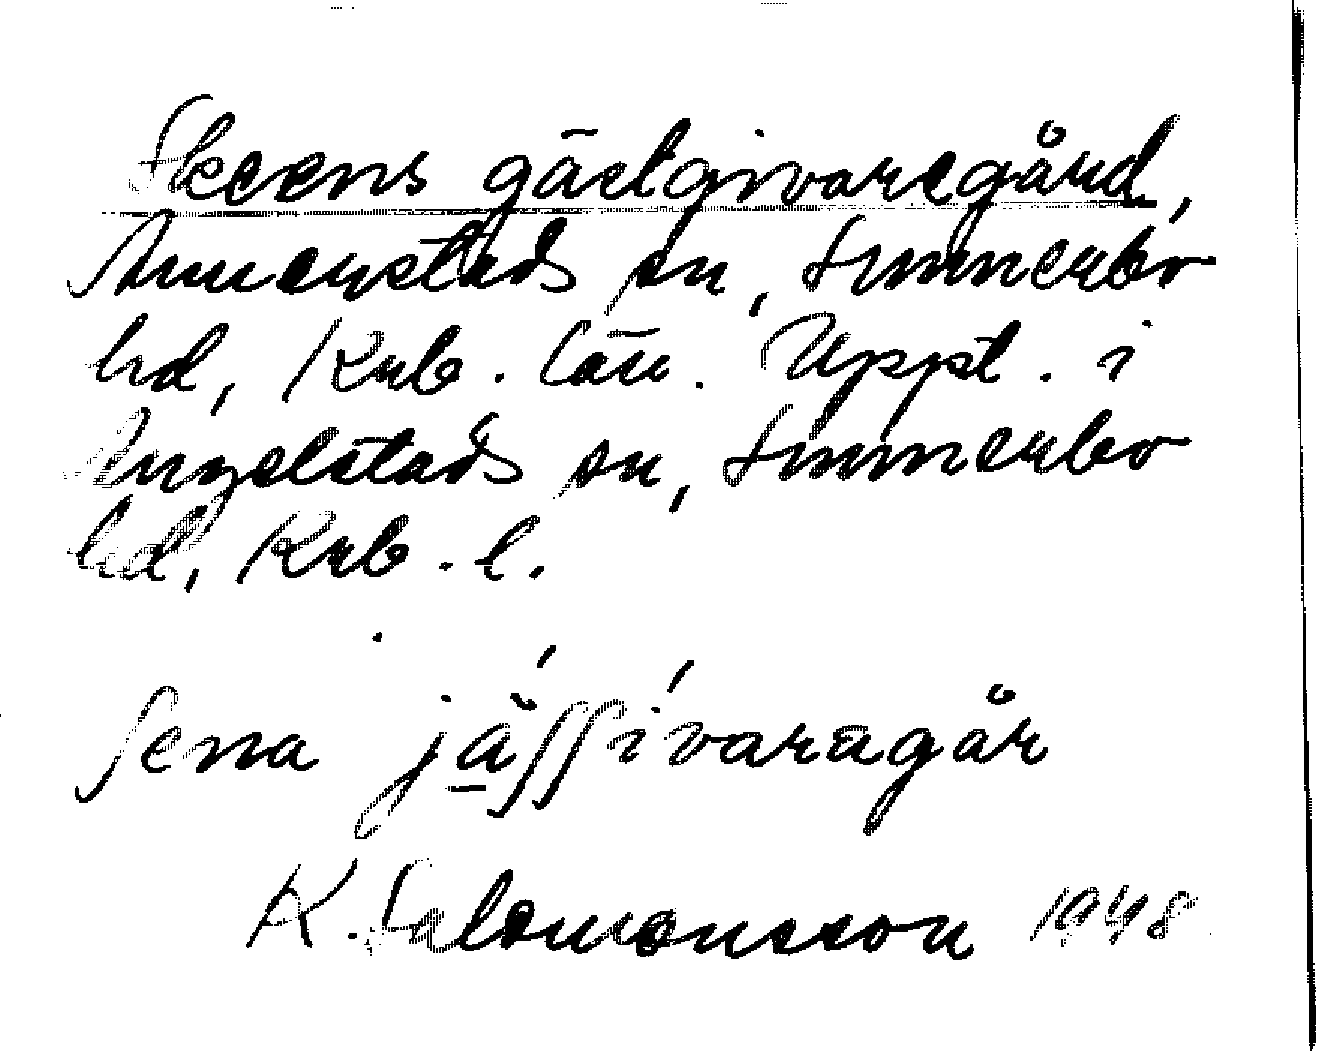 Skeens gästgivaregård,
Annerstads sn, Sunnerbo
hd, Krb. län. Uppt. i
Angelstads sn, Sunnerbo
hd, Krb. l.
ʃena jä́ʃʃívaragår
K. Salomonsson 1948